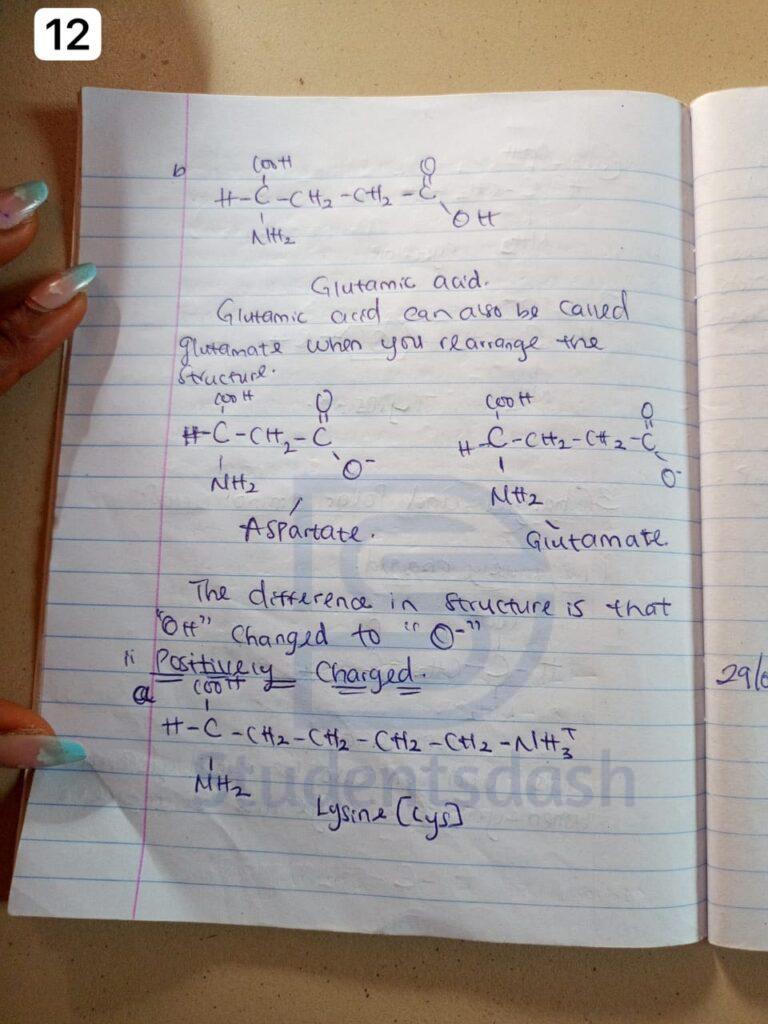 12
b
COOH
H-C-CH2-CH2-C
O
OH
NH2
Glutamic acid.
Glutamic acid can also be called
glutamate when you rearrange the
structure.
COOH
H-C-CH2-C
O
O-
NH2
Aspartate.
COOH
H-C-CH2-CH2-C
O
O-
NH2
Glutamate.
The difference in structure is that
"OH" changed to "O-"
ii Positively Charged.
a
COOH
H-C-CH2-CH2-CH2-CH2-NH3+
NH2
Lysine [Cys]
Studentsdash